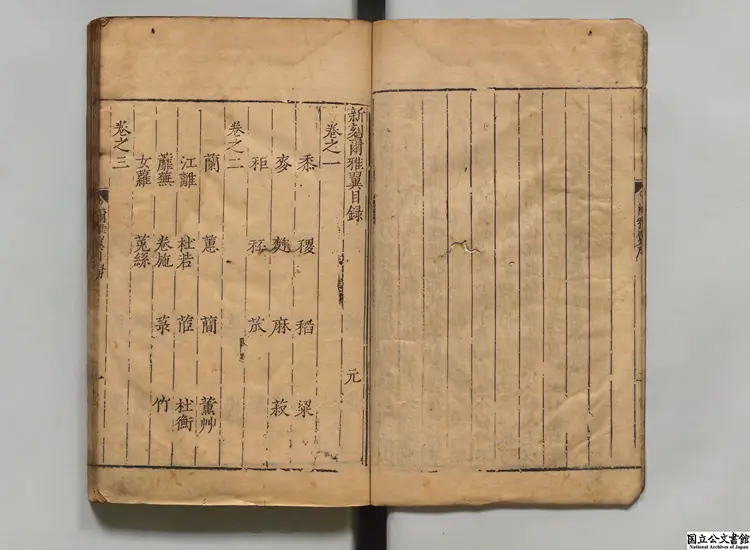 新刻爾雅翼目録 元
卷之一
黍 稷 稻 粱
麥 麰 麻 菽
秬 秠
卷之二
蘭 蕙 蕳 薰艸
江離 杜若 茝 杜衡
蘼蕪 卷施 菉 竹
女蘿 菟絲
卷之三
国立公文書館
National Archives of Japan